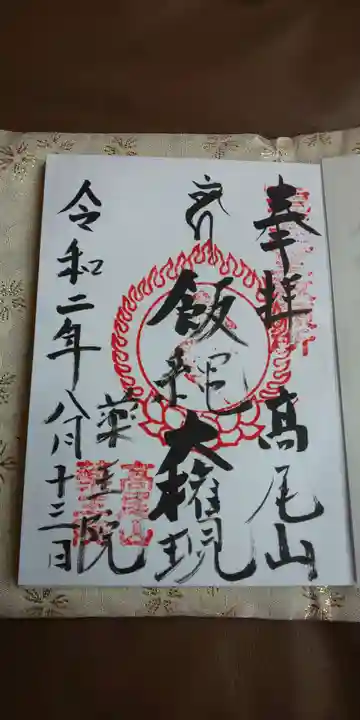 奉拝 高尾山
飯縄大権現
薬王院
令和二年八月十三日
高尾山
薬王院